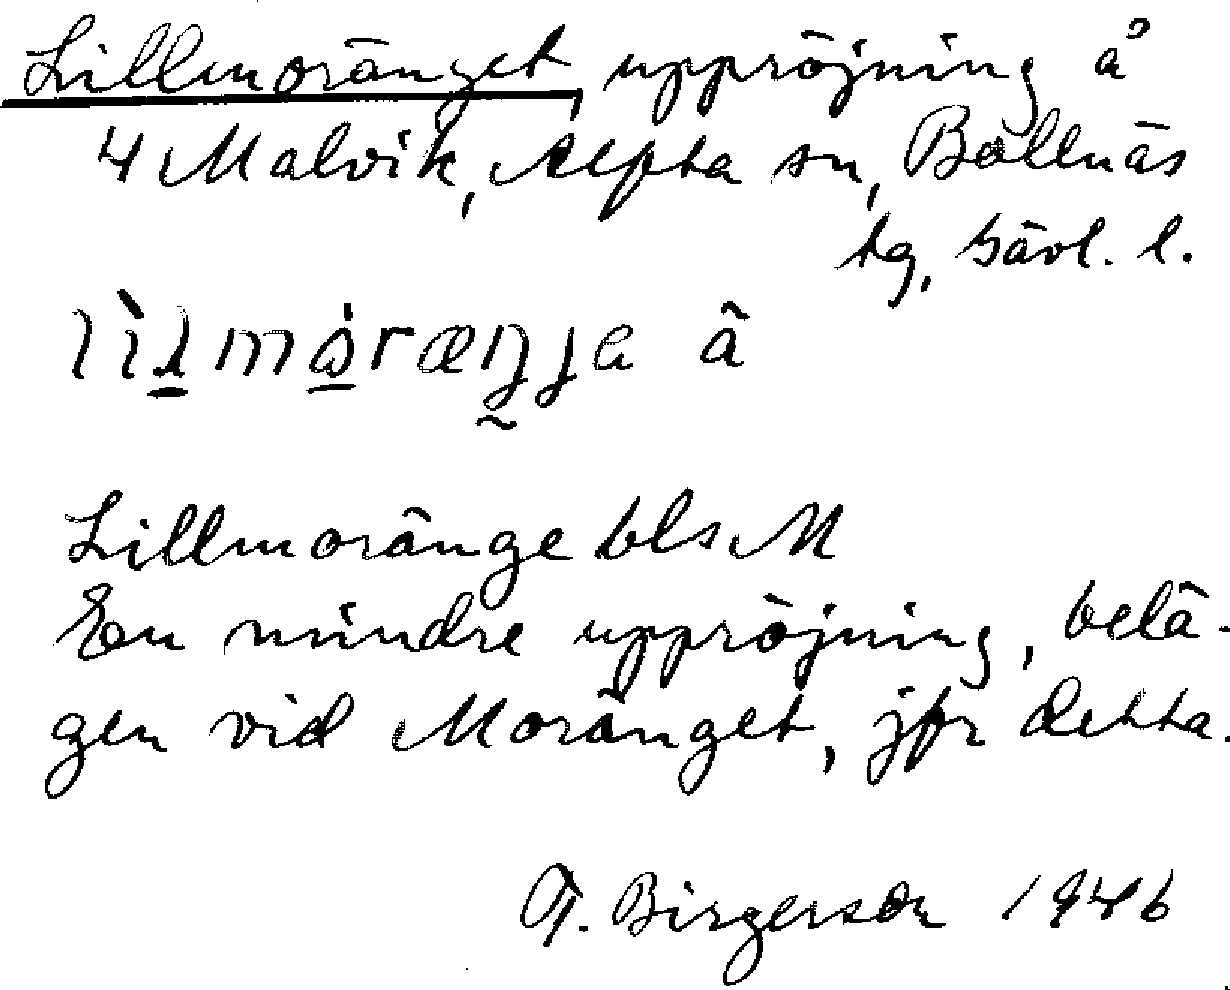 Lillmoränget, uppröjning å
4 Malvik, Alfta sn, Bollnäs
tg, Gävl. l.
lìlmọ́ræŋ̰ɟa ã
Lillmoränge bls M
En mindre uppröjning, belä-
gen vid Moränget, jfr detta.
T. Birgerson 1946